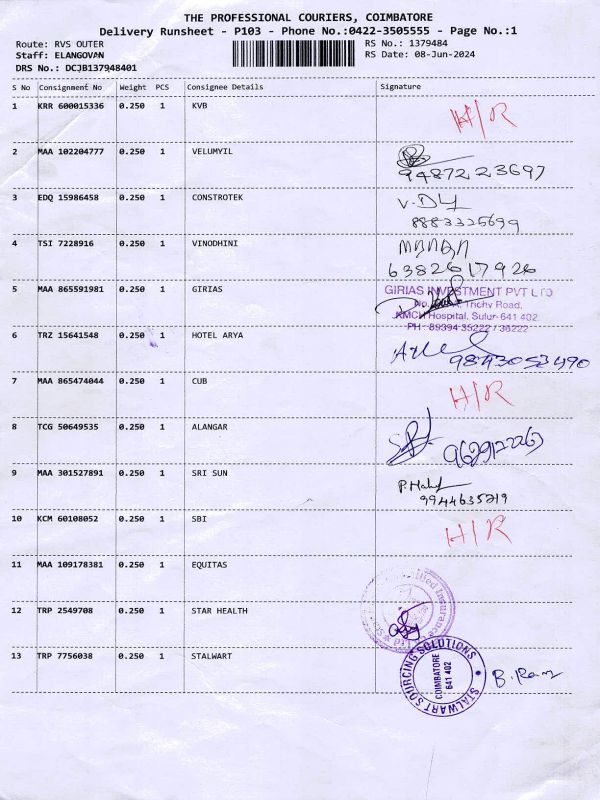 THE PROFESSIONAL COURIERS, COIMBATORE
Delivery Runsheet - P103 - Phone No.:0422-3505555 - Page No.:1
Route: RVS OUTER
RS No.: 1379484
Staff: ELANGOVAN
RS Date: 08-Jun-2024
DRS No.: DCJB137948401
S No Consignment No Weight PCS Consignee Details Signature
1 KRR 600015336 0.250 1 KVB H/R
2 MAA 102204777 0.250 1 VELUMYIL
9487223697
3 EDQ 15986458 0.250 1 CONSTROTEK
8883325699
4 TSI 7228916 0.250 1 VINODHINI
6382617926
5 MAA 865591981 0.250 1 GIRIAS GIRIAS INVESTMENT PVT LTD
Trichy Road,
KMCH Hospital, Sulur-641 402
PH : 89394 35222 / 36222
6 TRZ 15641548 1 0.250 HOTEL ARYA
9843053490
7 MAA 865474044 0.250 1 CUB H/R
8 TCG 50649535 0.250 1 ALANGAR
9629122263
9 MAA 301527891 0.250 1 SRI SUN
9944635219
10 KCM 60108052 0.250 1 SBI H/R
11 MAA 109178381 0.250 1 EQUITAS
Allied Insurance
12 TRP 2549708 0.250 1 STAR HEALTH
13 TRP 7756038 0.250 1 STALWART
STALWART SOURCING SOLUTIONS
COIMBATORE
641 402
B. Ram